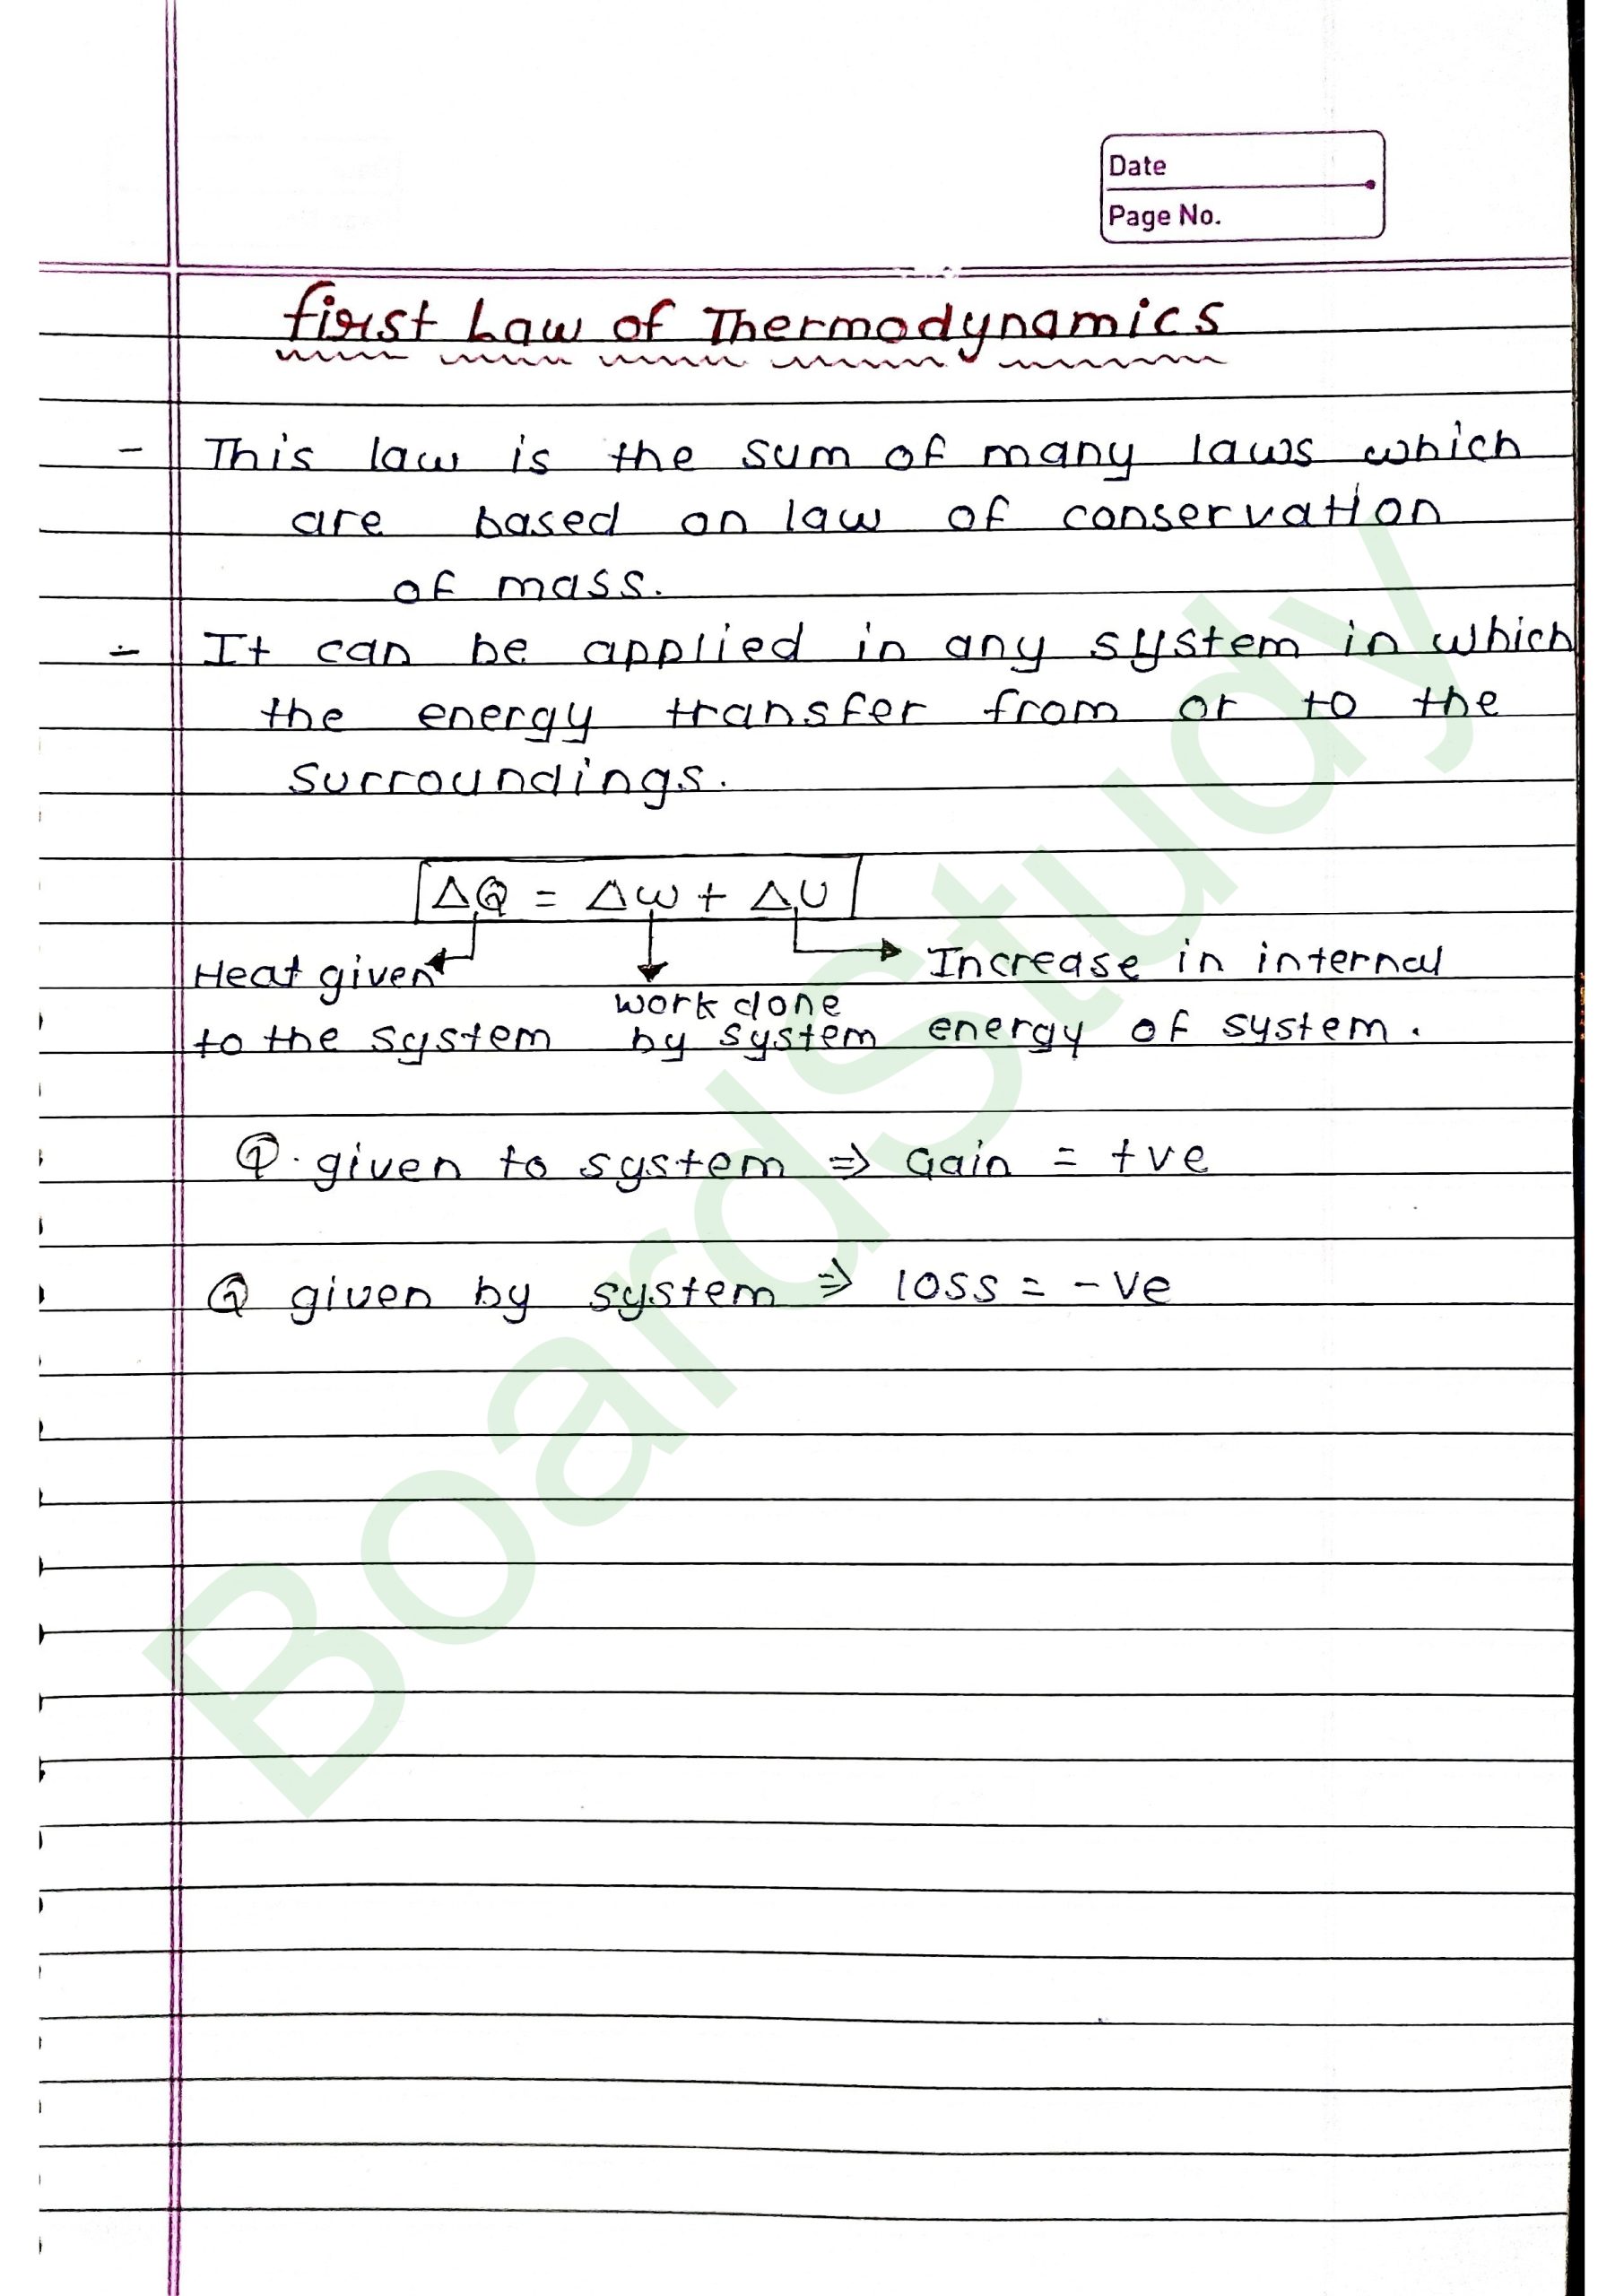 Date
Page No.
first Law of Thermodynamics
- This law is the sum of many laws which
are based on law of conservation
of mass.
- It can be applied in any system in which
the energy transfer from or to the
surroundings.
ΔQ = Δw + ΔU
Heat given
Increase in internal
work done
to the system by system energy of system.
Q. given to system ⇒ Gain = +ve
Q given by system ⇒ loss = -ve
BoardStudy